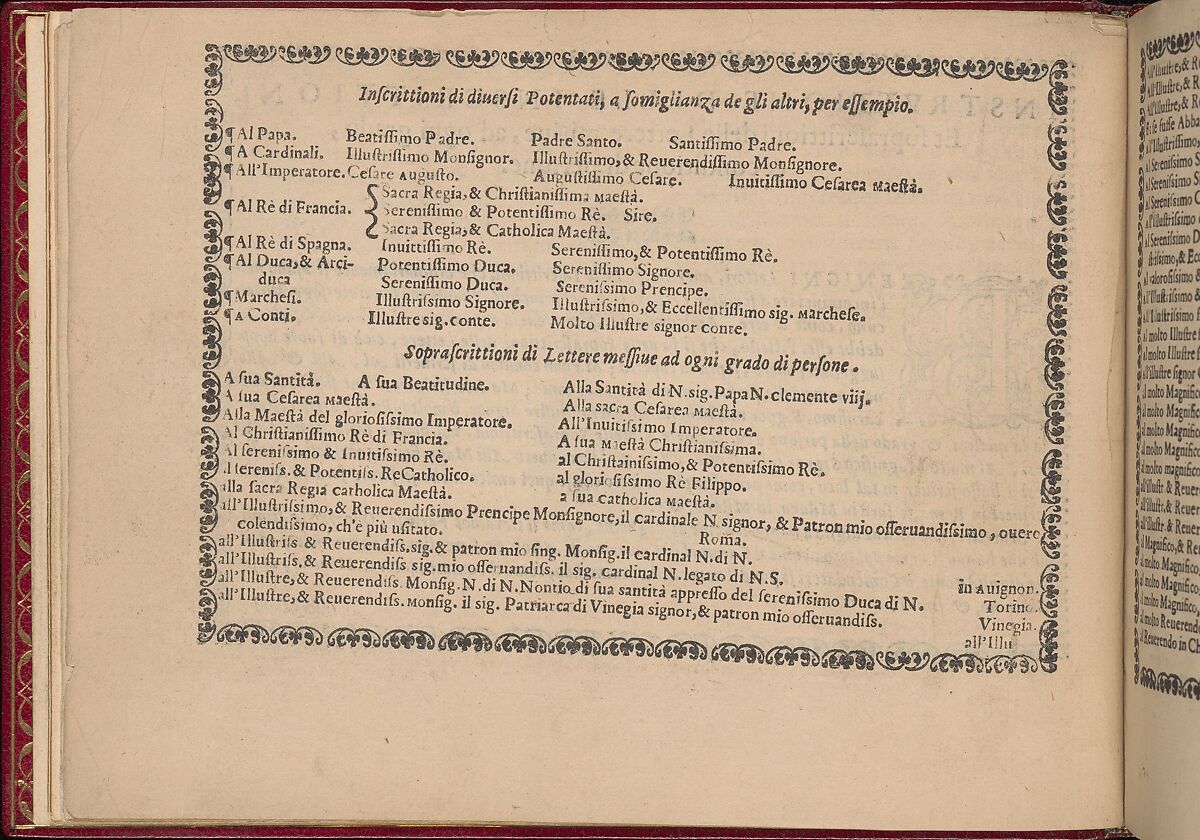 Inſcrittioni di diuerſi Potentati, a ſomiglianza de gli altri, per eſſempio.
¶ Al Papa. Beatiſſimo Padre. Padre Santo. Santiſſimo Padre.
¶ A Cardinali. Illuſtriſſimo Monſignor. Illuſtriſſimo, & Reuerendiſſimo Monſignore.
¶ All'Imperatore. Ceſare Auguſto. Auguſtiſſimo Ceſare. Inuitiſſimo Ceſarea Maeſtà.
Sacra Regia, & Chriſtianiſſima Maeſtà.
¶ Al Rè di Francia. Sereniſſimo & Potentiſſimo Rè. Sire.
Sacra Regia, & Catholica Maeſtà.
¶ Al Rè di Spagna. Inuittiſſimo Rè. Sereniſſimo, & Potentiſſimo Rè.
¶ Al Duca, & Arci- Potentiſſimo Duca. Sereniſſimo Signore.
duca Sereniſſimo Duca. Sereniſſimo Prencipe.
¶ Marcheſi. Illuſtriſſimo Signore. Illuſtriſſimo, & Eccellentiſſimo sig. Marcheſe.
¶ A Conti. Illuſtre sig. conte. Molto Illuſtre signor conte.
Sopraſcrittioni di Lettere meſſiue ad ogni grado di perſone.
A ſua Santità. A ſua Beatitudine. Alla Santità di N. sig. Papa N. clemente viij.
A ſua Ceſarea Maeſtà. Alla ſacra Ceſarea Maeſtà.
Alla Maeſtà del glorioſiſſimo Imperatore. All'Inuitiſſimo Imperatore.
Al Chriſtianiſſimo Rè di Francia. A ſua Maeſtà Chriſtianiſſima.
Al ſereniſſimo & Inuitiſſimo Rè. al Chriſtainiſſimo, & Potentiſſimo Rè.
al ſereniſs. & Potentiſs. Re Catholico. al glorioſiſſimo Rè Filippo.
alla ſacra Regia catholica Maeſtà. a ſua catholica Maeſtà.
all'Illuſtriſſimo, & Reuerendiſſimo Prencipe Monſignore, il cardinale N. signor, & Patron mio oſſeruandiſſimo, ouero
colendiſſimo, ch'è più uſitato. Roma.
all'Illuſtriſs & Reuerendiſs. sig. & patron mio ſing. Monſig. il cardinal N. di N.
all'Illuſtriſs. & Reuerendiſs sig. mio oſſeruandiſs. il sig. cardinal N. legato di N. S. in Auignon.
all'Illuſtre, & Reuerendiſs. Monſig. N. di N. Nontio di ſua santità appreſſo del ſereniſſimo Duca di N. Torino.
all'Illuſtre, & Reuerendiſs. Monſig. il sig. Patriarca di Vinegia signor, & patron mio oſſeruandiſs. Vinegia.
all'Illu